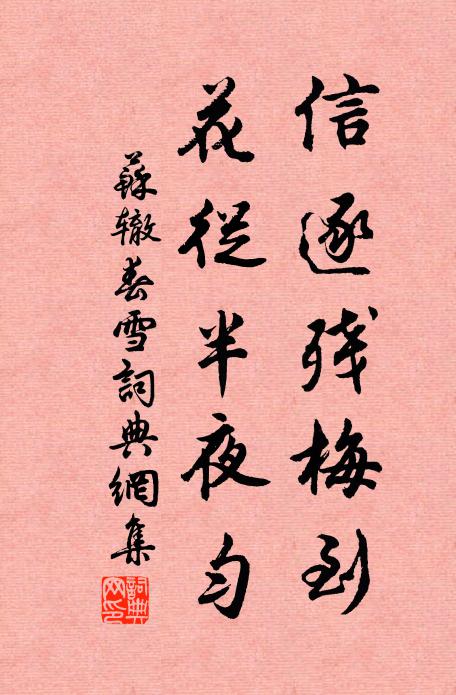 信逐残梅到
花從半夜勻
蘇辙春雪詞典網集
詞典网印